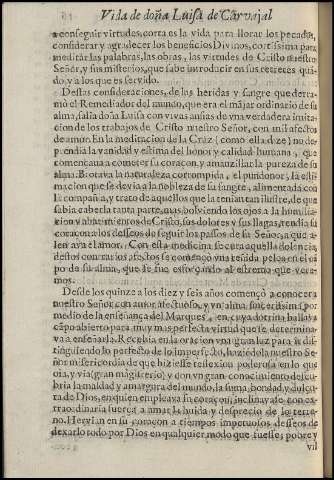 Vida de doña Luisa de Carvajal
a conseguir virtudes, corta es la vida para llorar los pecados,
considerar y agradecer los beneficios Divinos, cortissima para
meditar las palabras, las obras, las virtudes de Cristo nuestro
Señor, y sus misterios, que sabe introducir en sus retretes quādo,
y a los que es servido.
Destas consideraciones, de las heridas y sangre que derramó
el Remediador del mundo, que era el májar ordinario de su
alma, salia doña Luisa con vivas ansias de vna verdadera imitacion
de los trabajos de Cristo nuestro Señor, con mil afectos
de amor. En la meditacion de la Cruz (como ella dize) no depēndia
la vanidad y estima del honor y calidad humana, que
començaua a cometer su coraçon, y amanzillar la pureza de su
alma. Brotava la naturaleza corrompida, el pundonor, la estimacion
que se devia a la nobleza de la sangre, alimentada con
la compañia, y trato de aquellos que la tenian tan ilustre, de que
sabia caberla tanta parte, mas bolviendo los ojos a la humiliacion
y abatimientos de Cristo, sus dolores y sus llagas, rendia su
coraçon a los desseos de seguir los passos de su Señor, a que alen
ava el amor. Con esta medicina se cura aquella dolencia,
destos contrarios afectos se començó vna reñida pelea en el cāpo
de su alma, que se fue esforçando al estremo que veremos.
Desde los quinze a los diez y seis años començó a conocer a
nuestro Señor con amor afectuoso, y vn alma sincerissima (por
medio de la enseñança del Marques, en cuya dotrina hallava
cāpo abierto para muy mas perfecta virtud que se determinava
a enseñarla. Recebia en la oracion vna gran luz para ir distinguiendo
lo perfecto de lo imperfeto, haziēdola nuestro Señor
misericordia de que hiziesse reflexion poderosa en lo que
oia, y via (gran magisterio) y don vn gran conocimiento descubria
la maldad y amargura del mundo, la suma bondad y dulçura
de Dios, en quien empleava su coraçon, inclinavale con extraordinaria
fuerça a amar la huida y desprecio de lo terreno.
Hervian en su coraçon a tiempos impetuosos desseos de
dexarlo todo por Dios en qualquier modo que fuesse, pobre y
vil